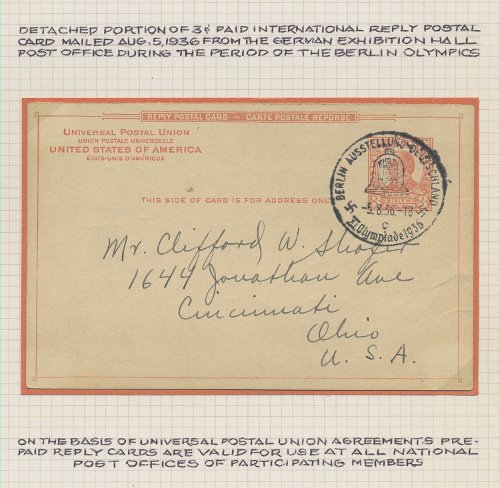 DETACHED PORTION OF 3¢ PAID INTERNATIONAL REPLY POSTAL
CARD MAILED AUG. 5, 1936 FROM THE GERMAN EXHIBITION HALL
POST OFFICE DURING THE PERIOD OF THE BERLIN OLYMPICS
REPLY POSTAL CARD — CARTE POSTALE RÉPONSE
UNIVERSAL POSTAL UNION
UNION POSTALE UNIVERSELLE
UNITED STATES OF AMERICA
ÉTATS-UNIS D'AMÉRIQUE
THIS SIDE OF CARD IS FOR ADDRESS ONLY
BERLIN AUSSTELLUNG DEUTSCHLAND
-5.8.36.-18
c
XI. Olympiade 1936
Mr. Clifford W. Shafer
1644 Jonathan Ave
Cincinnati
Ohio
U. S. A.
ON THE BASIS OF UNIVERSAL POSTAL UNION AGREEMENTS PRE-
PAID REPLY CARDS ARE VALID FOR USE AT ALL NATIONAL
POST OFFICES OF PARTICIPATING MEMBERS